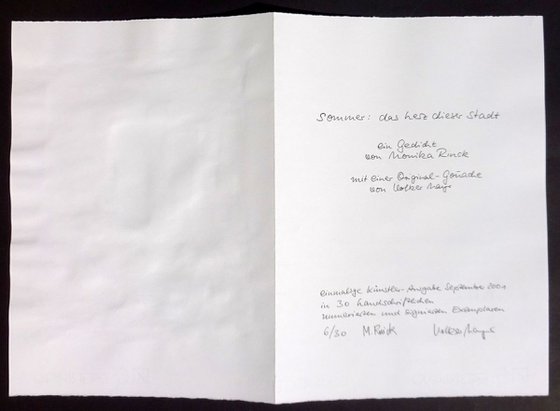 Sommer: das Herz dieser Stadt
ein Gedicht
von Monika Rinck
mit einer Original-Gouache
von Volker
einmalige Künstler-Ausgabe September 2001
in 30 handschriftlichen
nummerierten und signierten Exemplaren
6/30 M. Rinck Volker